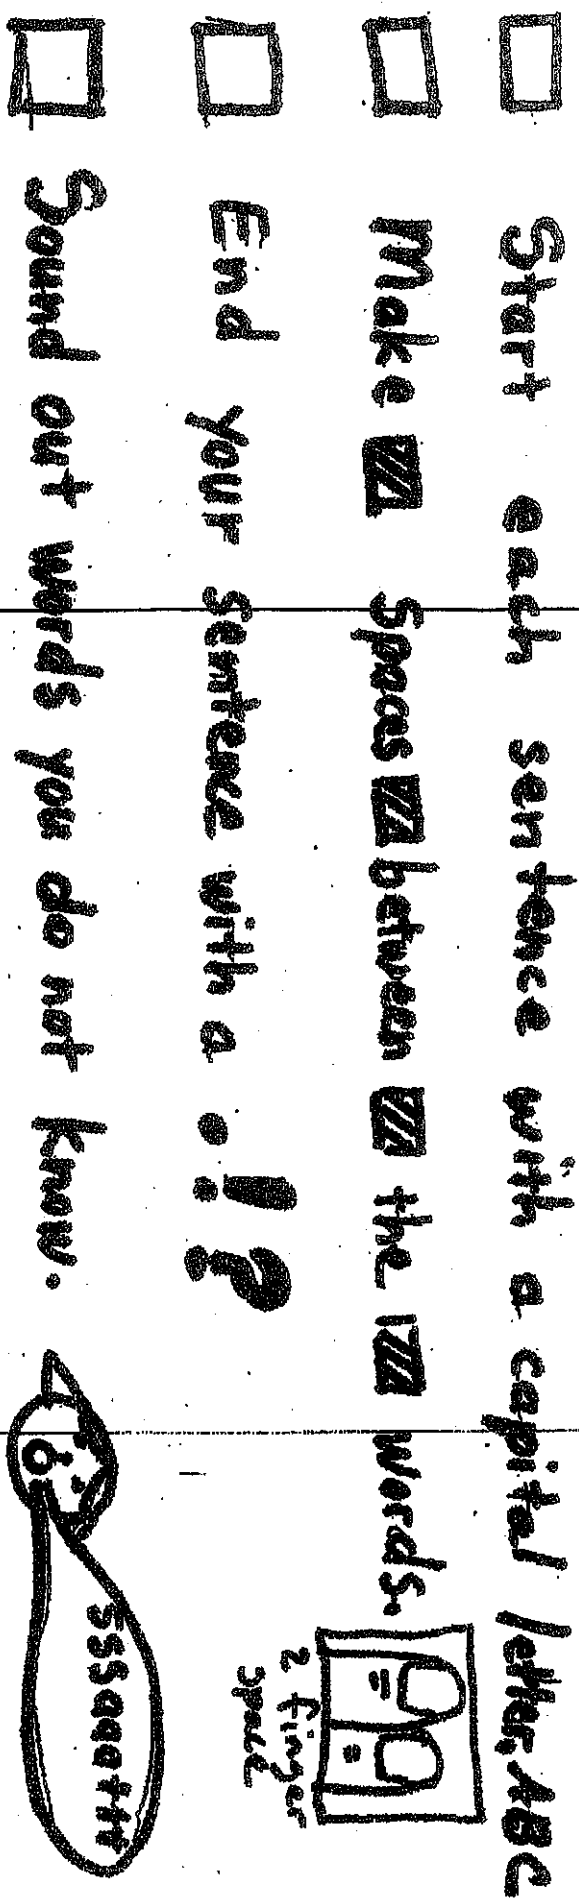 Start each sentence with a capital letter, ABC
Make spaces between the words.
2 finger
space
End your sentence with a . ! ?
Sound out words you do not know.
sssaaattt